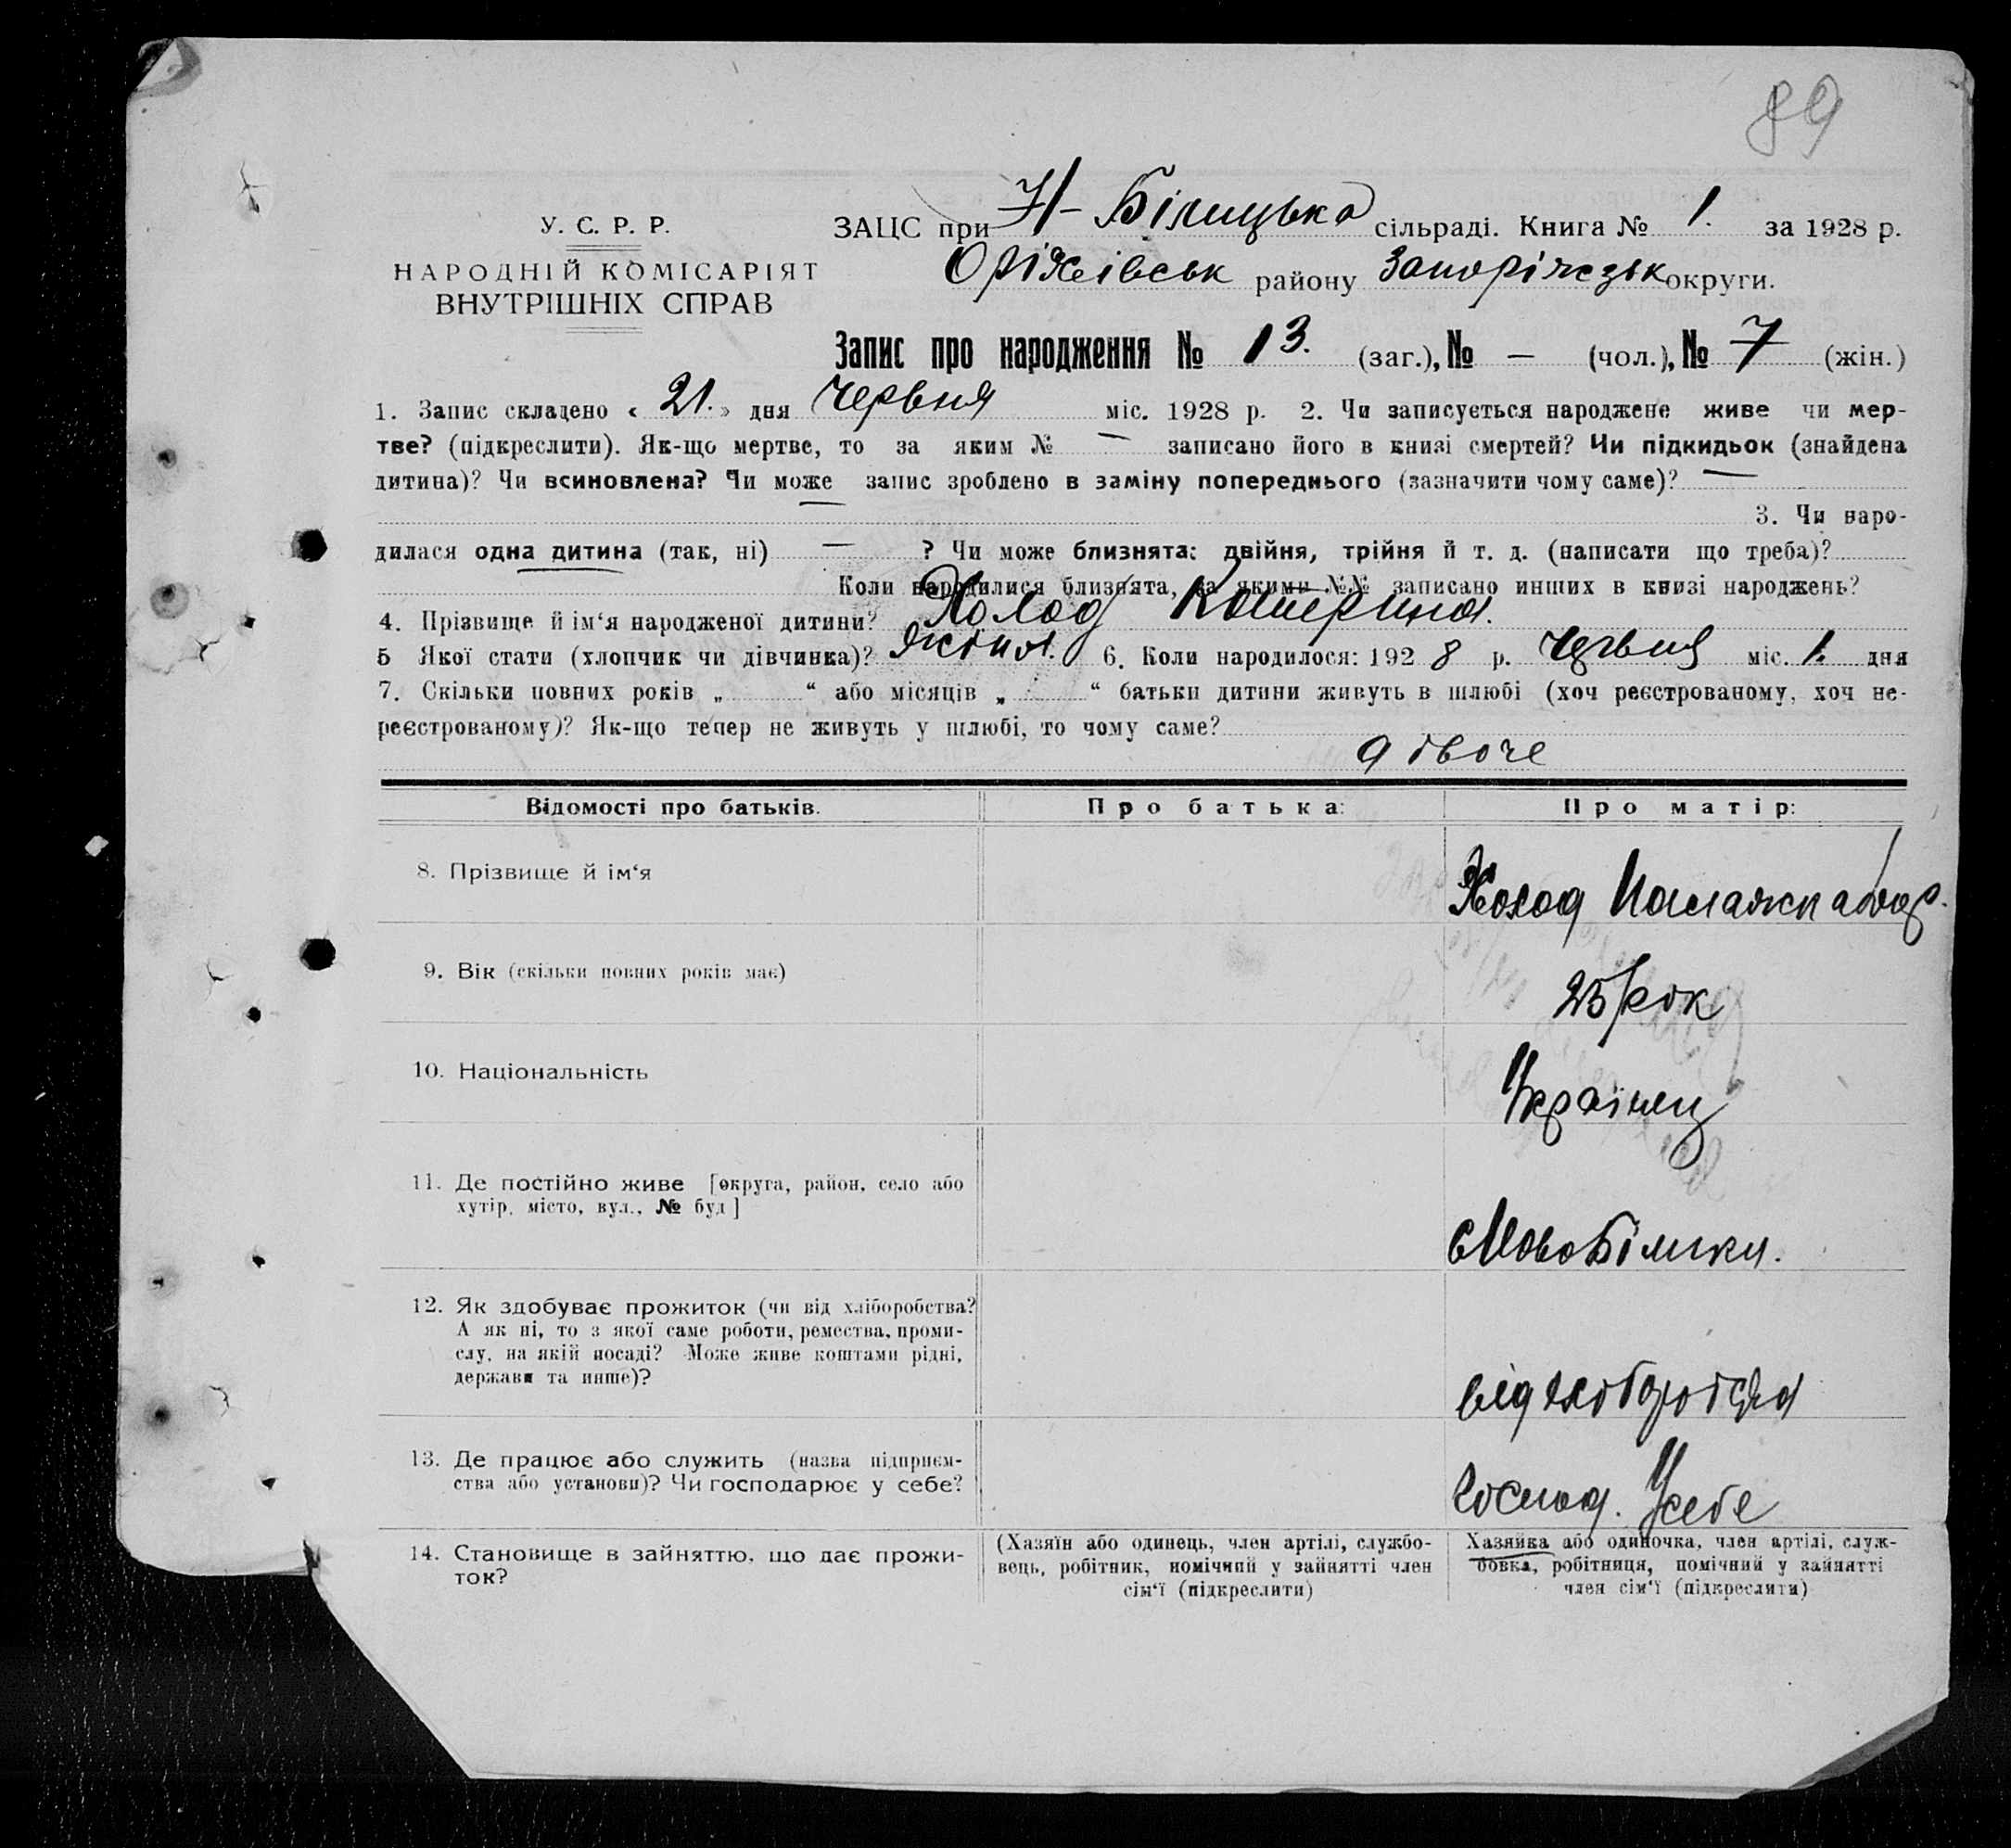 89
У. С. Р. Р.
НАРОДНІЙ КОМІСАРІЯТ
ВНУТРІШНІХ СПРАВ
ЗАЦС при Н-Білицька сільраді. Книга № 1. за 1928 р.
Оріхівськ району Запоріжськ округи.
Запис про народження № 13. (заг.), № — (чол.), № 7 (жін.)
1. Запис складено « 21. » дня Червня міс. 1928 р. 2. Чи записується народжене живе чи мер-
тве? (підкреслити). Як-що мертве, то за яким № — записано його в книзі смертей? Чи підкидьок (знайдена
дитина)? Чи всиновлена? Чи може запис зроблено в заміну попереднього (зазначити чому саме)? —
3. Чи наро-
дилася одна дитина (так, ні) — ? Чи може близнята: двійня, трійня й т. д. (написати що треба)?
Коли народилися близнята, за якими №№ записано инших в книзі народжень?
4. Прізвище й ім‘я народженої дитини? Холод Катерина.
5 Якої стати (хлопчик чи дівчинка)? жіноч. 6. Коли народилося: 1928 р. Червня міс. 1. дня
7. Скільки повних років „ “ або місяців „ “ батьки дитини живуть в шлюбі (хоч реєстрованому, хоч не-
реєстрованому)? Як-що тепер не живуть у шлюбі, то чому саме?
Відомості про батьків. Про батька: Про матір:
8. Прізвище й ім‘я Холод
9. Вік (скільки повних років має) 25 рок
10. Національність Українец
11. Де постійно живе [округа, район, село або
хутір, місто, вул., № буд]
с НовоБілики.
12. Як здобуває прожиток (чи від хліборобства?
А як ні, то з якої саме роботи, ремества, проми-
слу, на якій посаді? Може живе коштами рідні,
держави та инше)?
від
13. Де працює або служить (назва підприєм-
ства або установи)? Чи господарює у себе?
Господ. Усебе
14. Становище в зайняттю, що дає прожи-
ток?
(Хазяїн або одинець, член артілі, службо-
вець, робітник, помічний у зайнятті член
сім‘ї (підкреслити)
Хазяйка або одиночка, член артілі, служ-
бовка, робітниця, помічний у зайнятті
член сім‘ї (підкреслити)